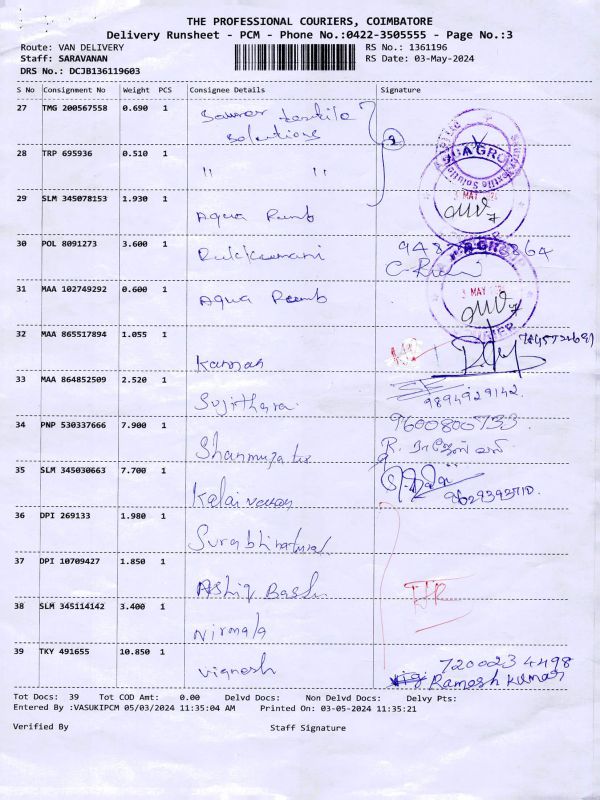 THE PROFESSIONAL COURIERS, COIMBATORE
Delivery Runsheet - PCM - Phone No.:0422-3505555 - Page No.:3
Route: VAN DELIVERY RS No.: 1361196
Staff: SARAVANAN RS Date: 03-May-2024
DRS No.: DCJB136119603
S No Consignment No Weight PCS Consignee Details Signature
27 TMG 200567558 0.690 1 textile
Solutions
28 TRP 695936 0.510 1 " "
29 SLM 345078153 1.930 1 Aqua
30 POL 8091273 3.600 1 Rukkumani
31 MAA 102749292 0.600 1 Aqua
3 MAY
32 MAA 865517894 1.055 1 Kannan
33 MAA 864852509 2.520 1 Sujithara 9894929142.
34 PNP 530337666 7.900 1 9600800733
35 SLM 345030663 7.700 1 Kalaivanan
36 DPI 269133 1.980 1 Surabhi
37 DPI 10709427 1.850 1 Ashiq
38 SLM 345114142 3.400 1 Nirmala
39 TKY 491655 10.850 1 Vignesh 7200234498
Ramesh Kumar
Tot Docs: 39 Tot COD Amt: 0.00 Delvd Docs: Non Delvd Docs: Delvy Pts:
Entered By :VASUKIPCM 05/03/2024 11:35:04 AM Printed On: 03-05-2024 11:35:21
Verified By Staff Signature